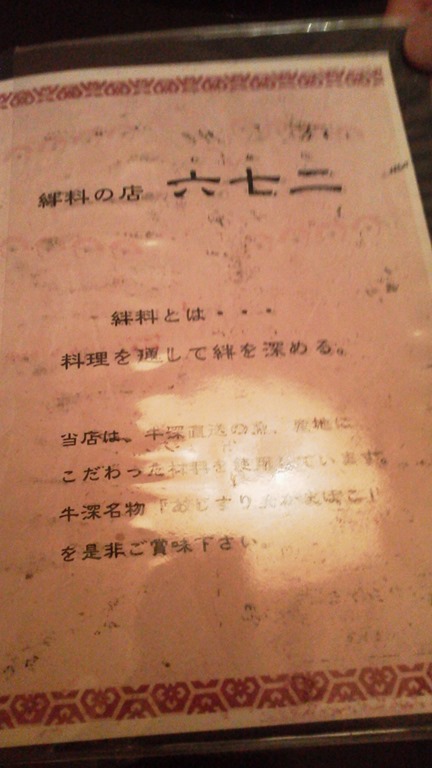 絆料の店 六七二
絆料とは・・・
料理を通して絆を深める。
当店は、牛深直送の魚、産地に
こだわった材料を使用しています。
牛深名物「あじすり
を是非ご賞味下さい。